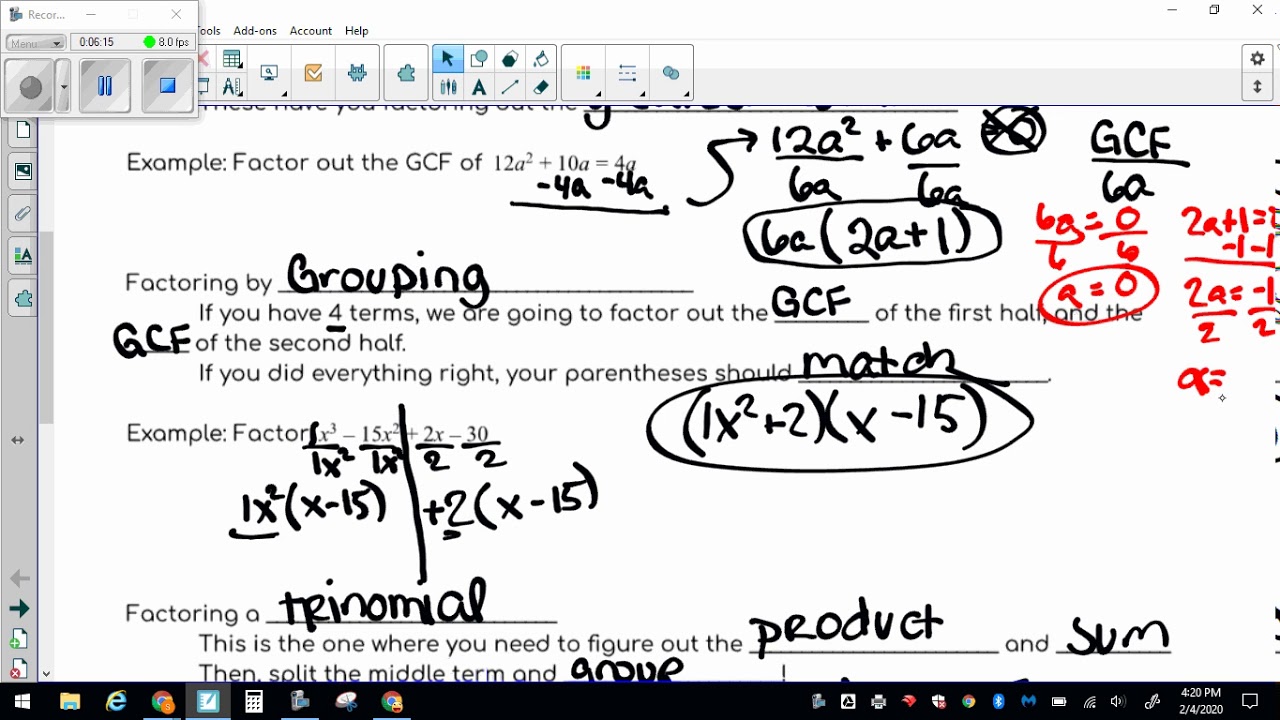 Recor...
Menu
0:06:15
8.0 fps
Tools Add-ons Account Help
12a² + 6a
6a 6a
GCF
6a
Example: Factor out the GCF of 12a² + 10a = 4a
-4a -4a
6a(2a+1)
6a = 0
6
a = 0
2a+1=
-1 -1
2a = -1
2 2
a=
Factoring by Grouping
If you have 4 terms, we are going to factor out the GCF of the first half, and the
GCF of the second half.
If you did everything right, your parentheses should match.
(1x²+2)(x-15)
Example: Factor x³ – 15x² + 2x – 30
1x² 1x² 2 2
1x²(x-15) +2(x-15)
Factoring a trinomial
This is the one where you need to figure out the product and sum
Then, split the middle term and group
4:20 PM
2/4/2020